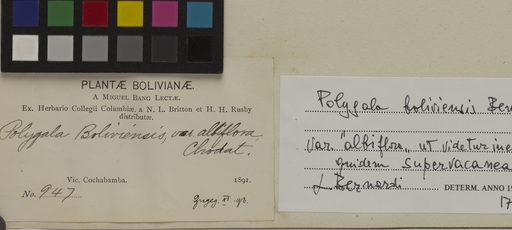 PLANTÆ BOLIVIANÆ.
A MIGUEL BANG LECTÆ.
Ex. Herbario Collegii Columbiæ, a N. L. Britton et H. H. Rusby
distributæ.
Polygala Boliviensis, var. albiflora
Chodat.
Vic. Cochabamba. 1891.
No. 947
Polygala boliviensis Ben
var. "albiflora" ut videtur ine
quidem supervacanea
L Bernardi DETERM. ANNO 19